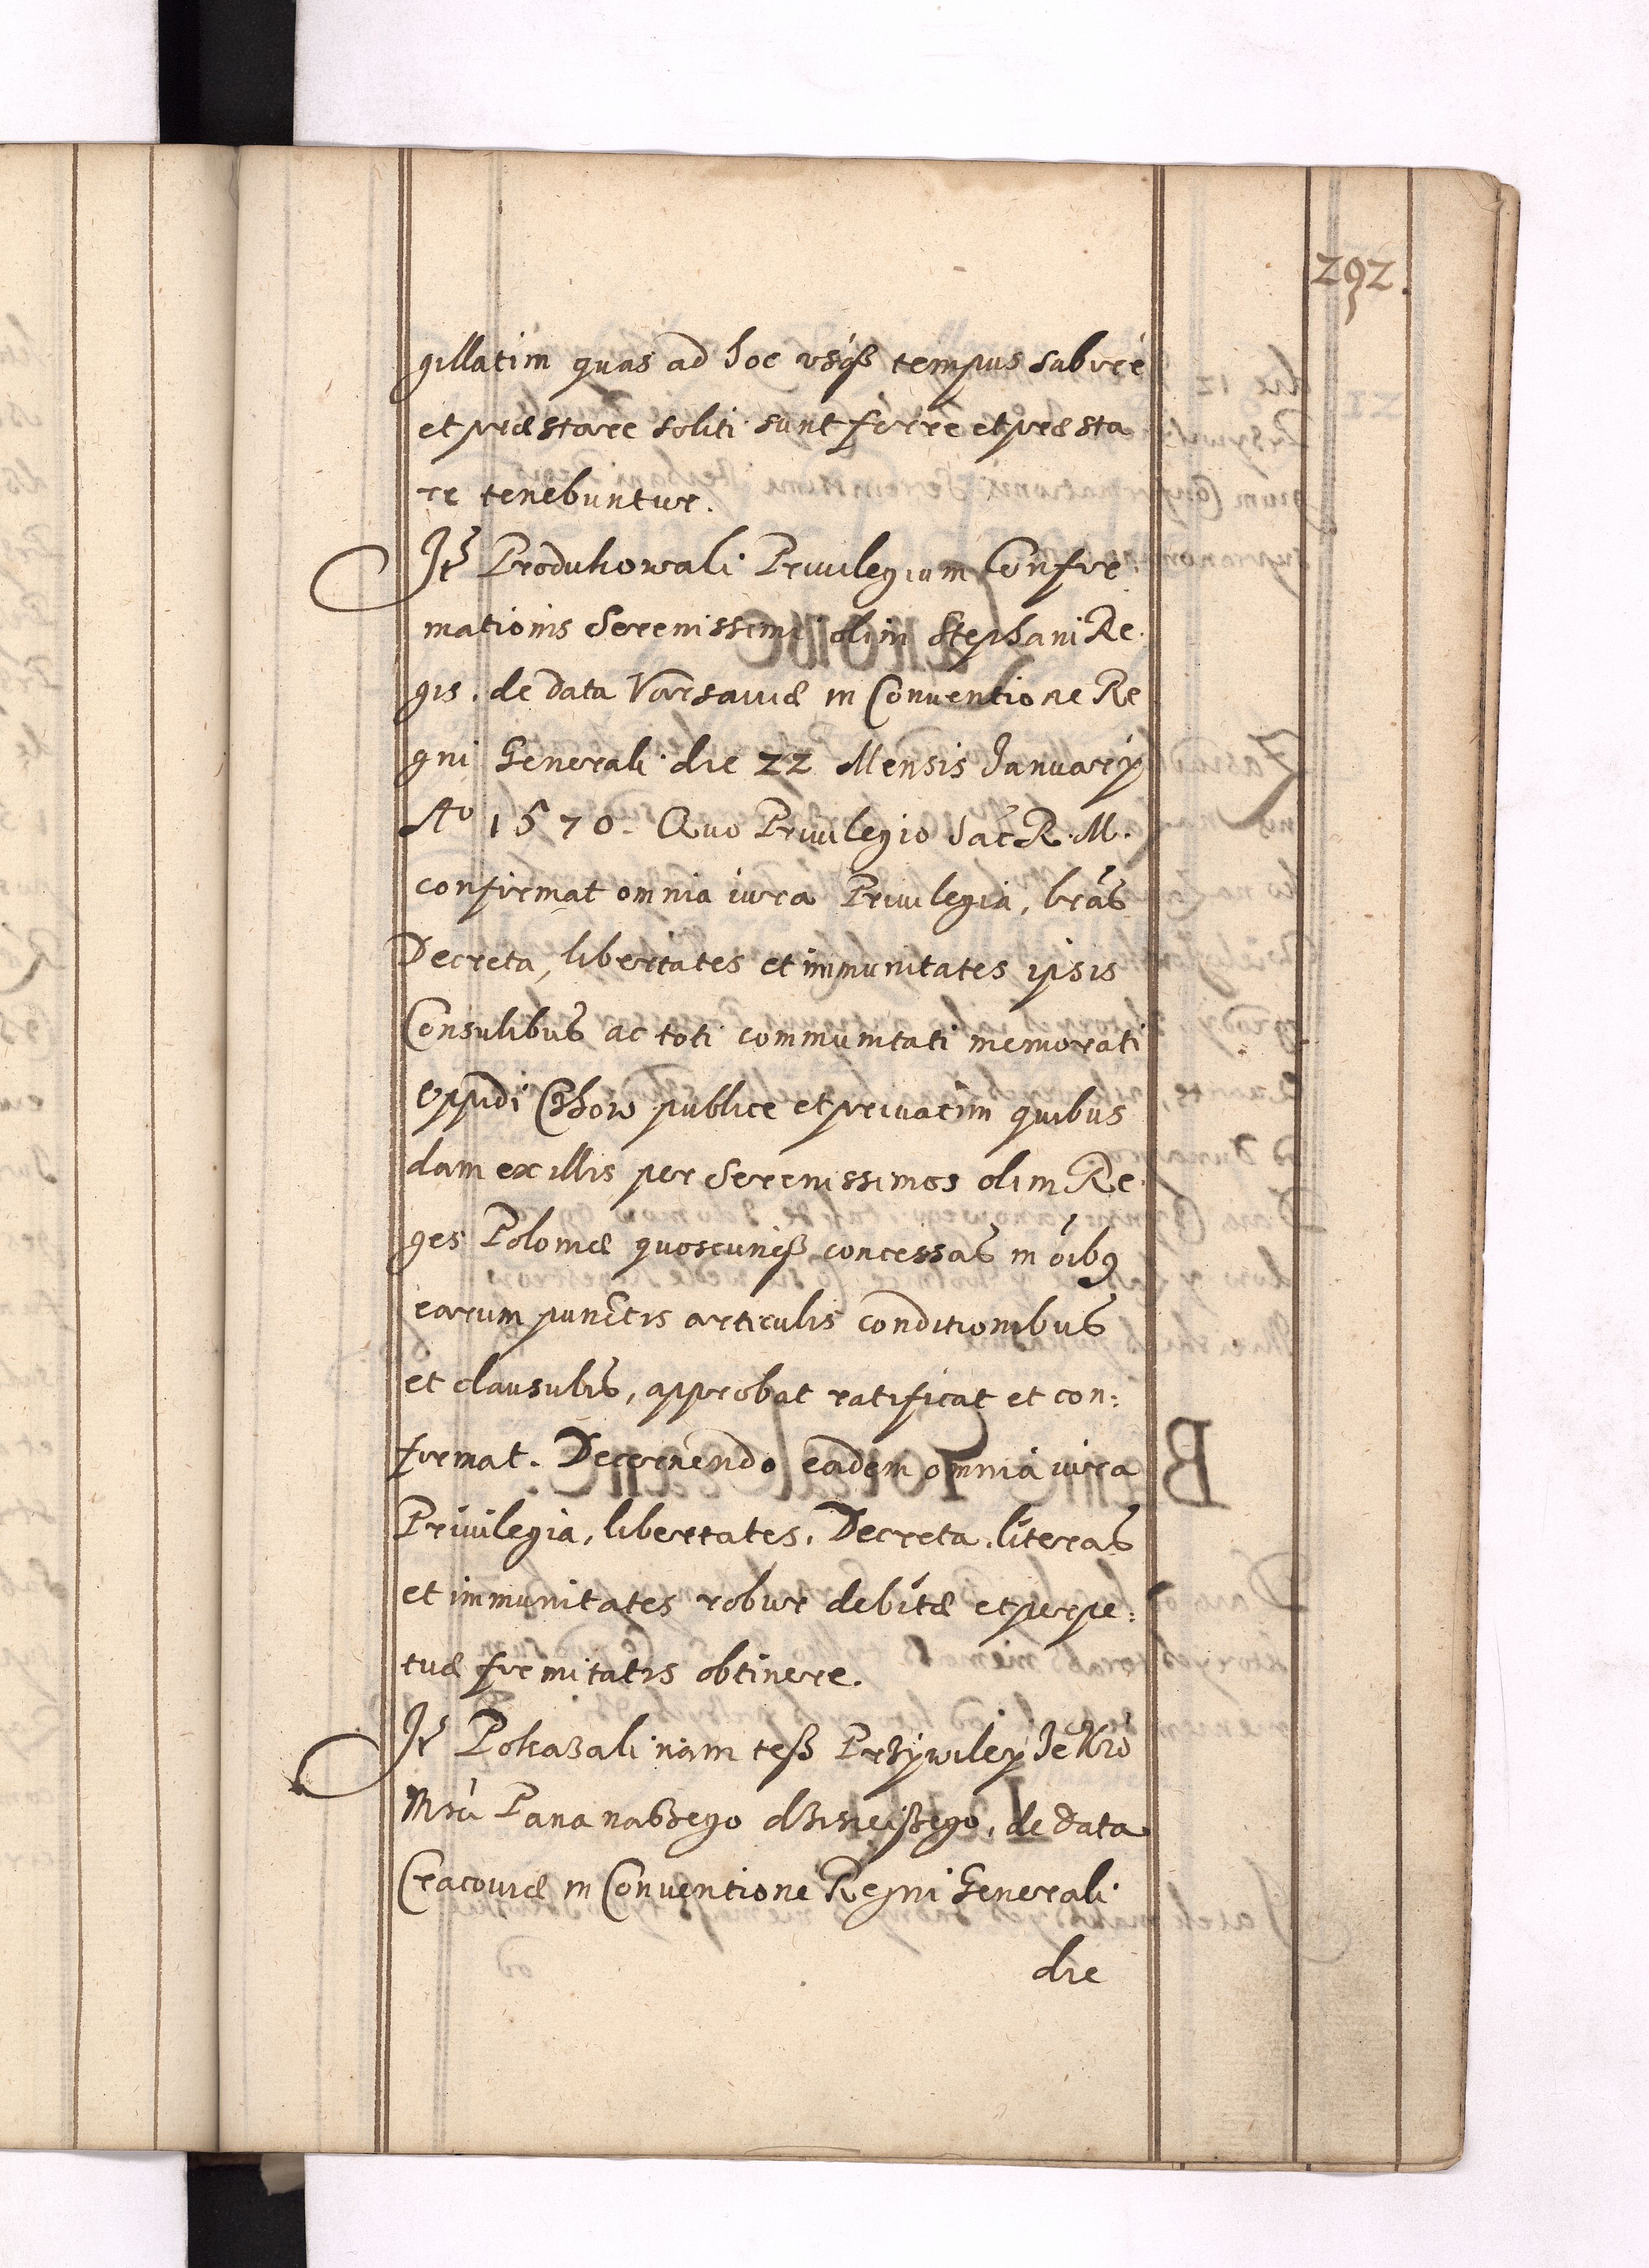 292.
gillatim quas ad hoc vsqß tempus subire
et præstare soliti sunt ferre et præsta
re tenebuntur.
It Produkowali Priuilegium Confir:
mationis Serenissimi olim Stephani Re:
gis. de data Varsauiæ in Conuentione Re
gni Generali die 22 Mensis Januarÿ
Aº 1570. Quo Priuilegio Sac R. M.
confirmat omnia iura Priuilegia, lras
Decreta, libertates et immunitates ipsis
Consulibus ac toti communitati memorati
oppidi publice et priuatim quibus
dam ex illis per Serenissimos olim Re:
ges Poloniæ quoscunqß concessas in oibq
earum punctis articulis conditionibus
et clausulis, approbat ratificat et con:
firmat. Decernendo eadem omnia iura
Priuilegia, libertates, Decreta, literas
et immunitates robur debitæ et perpe:
tuæ firmitatis obtinere.
It Pokazali nam teß Przywiley Je Kró
Mści Pana naßego dzisieißego, de data
Cracouiæ in Conuentione Regni Generali
die